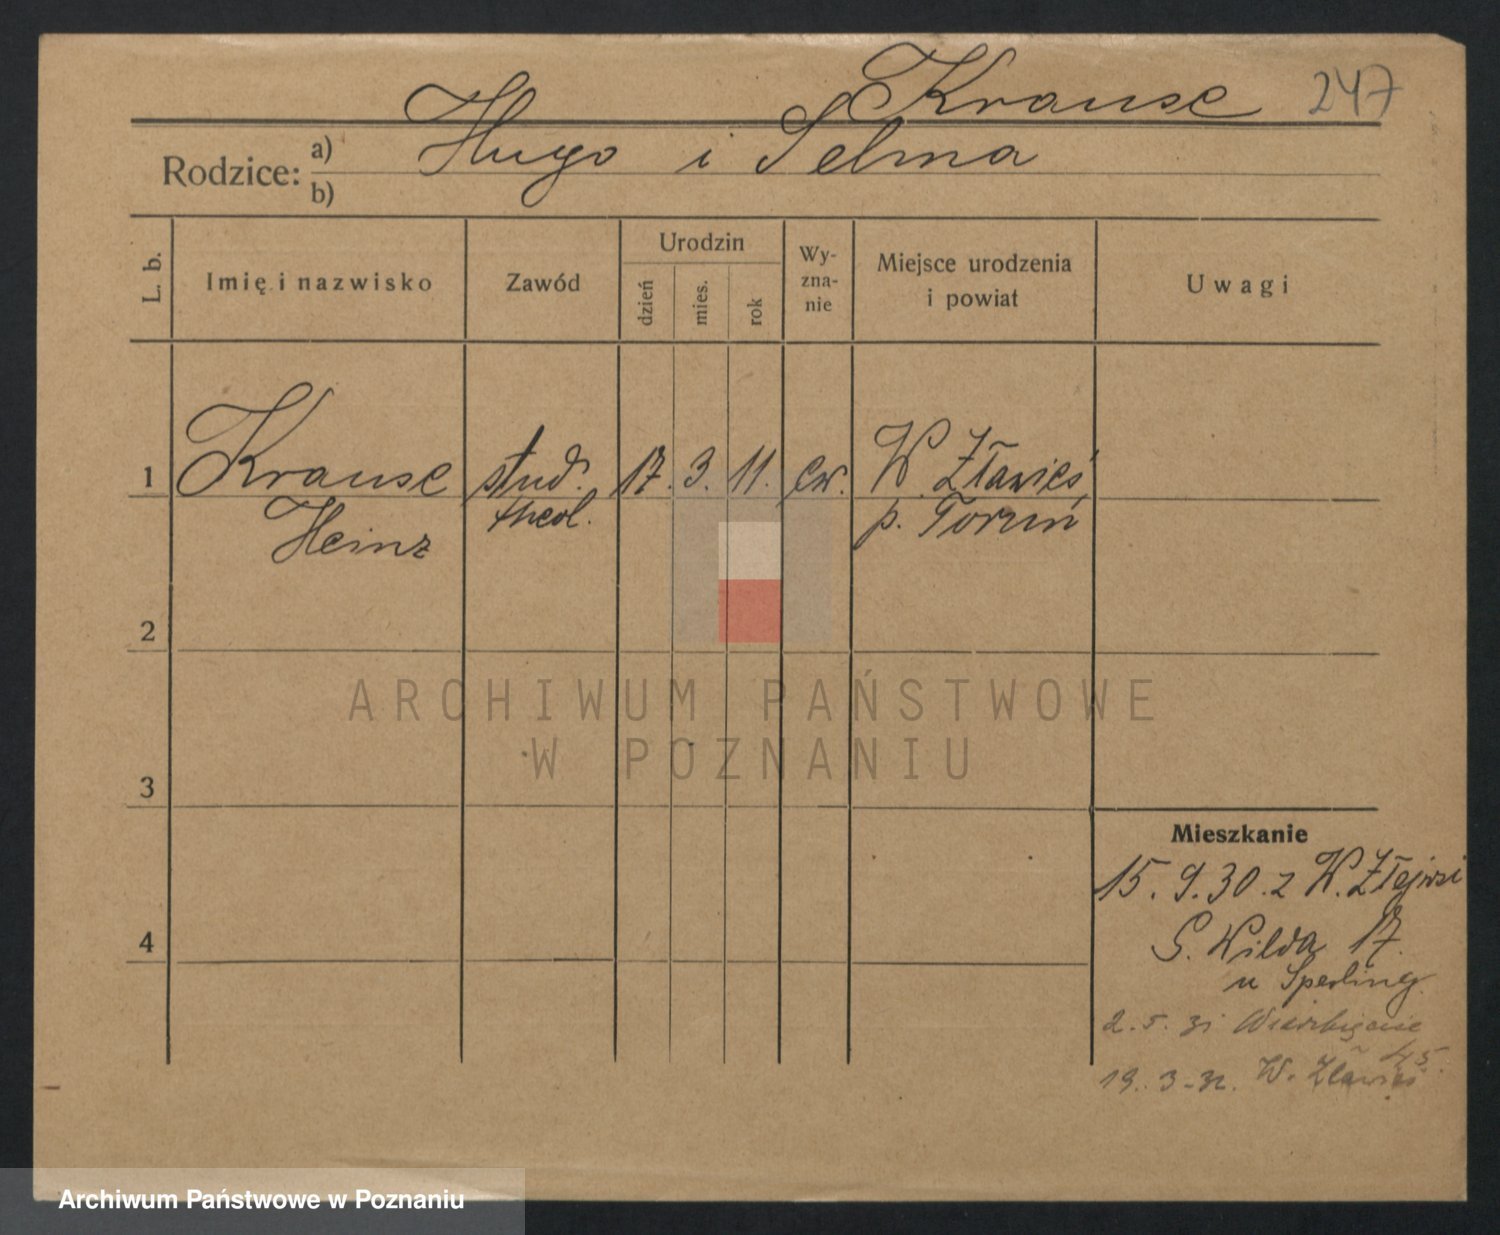 Krause 247
Rodzice: a) Hugo i Selma
b)
L. b. Imię i nazwisko Zawód Urodzin dzień mies. rok Wy-zna-nie Miejsce urodzenia i powiat Uwagi
1 Krause stud. 17. 3. 11. ew. W. Zławieś
Heinz theol. p. Toruń
2
ARCHIWUM PAŃSTWOWE
W POZNANIU
3
Mieszkanie
15. 9. 30. z W. Złejwsi
4
G. Wilda 17.
u Sperling.
2. 5. 31 Wierzbięcice
45.
19. 3-32. W. Zławieś
Archiwum Państwowe w Poznaniu